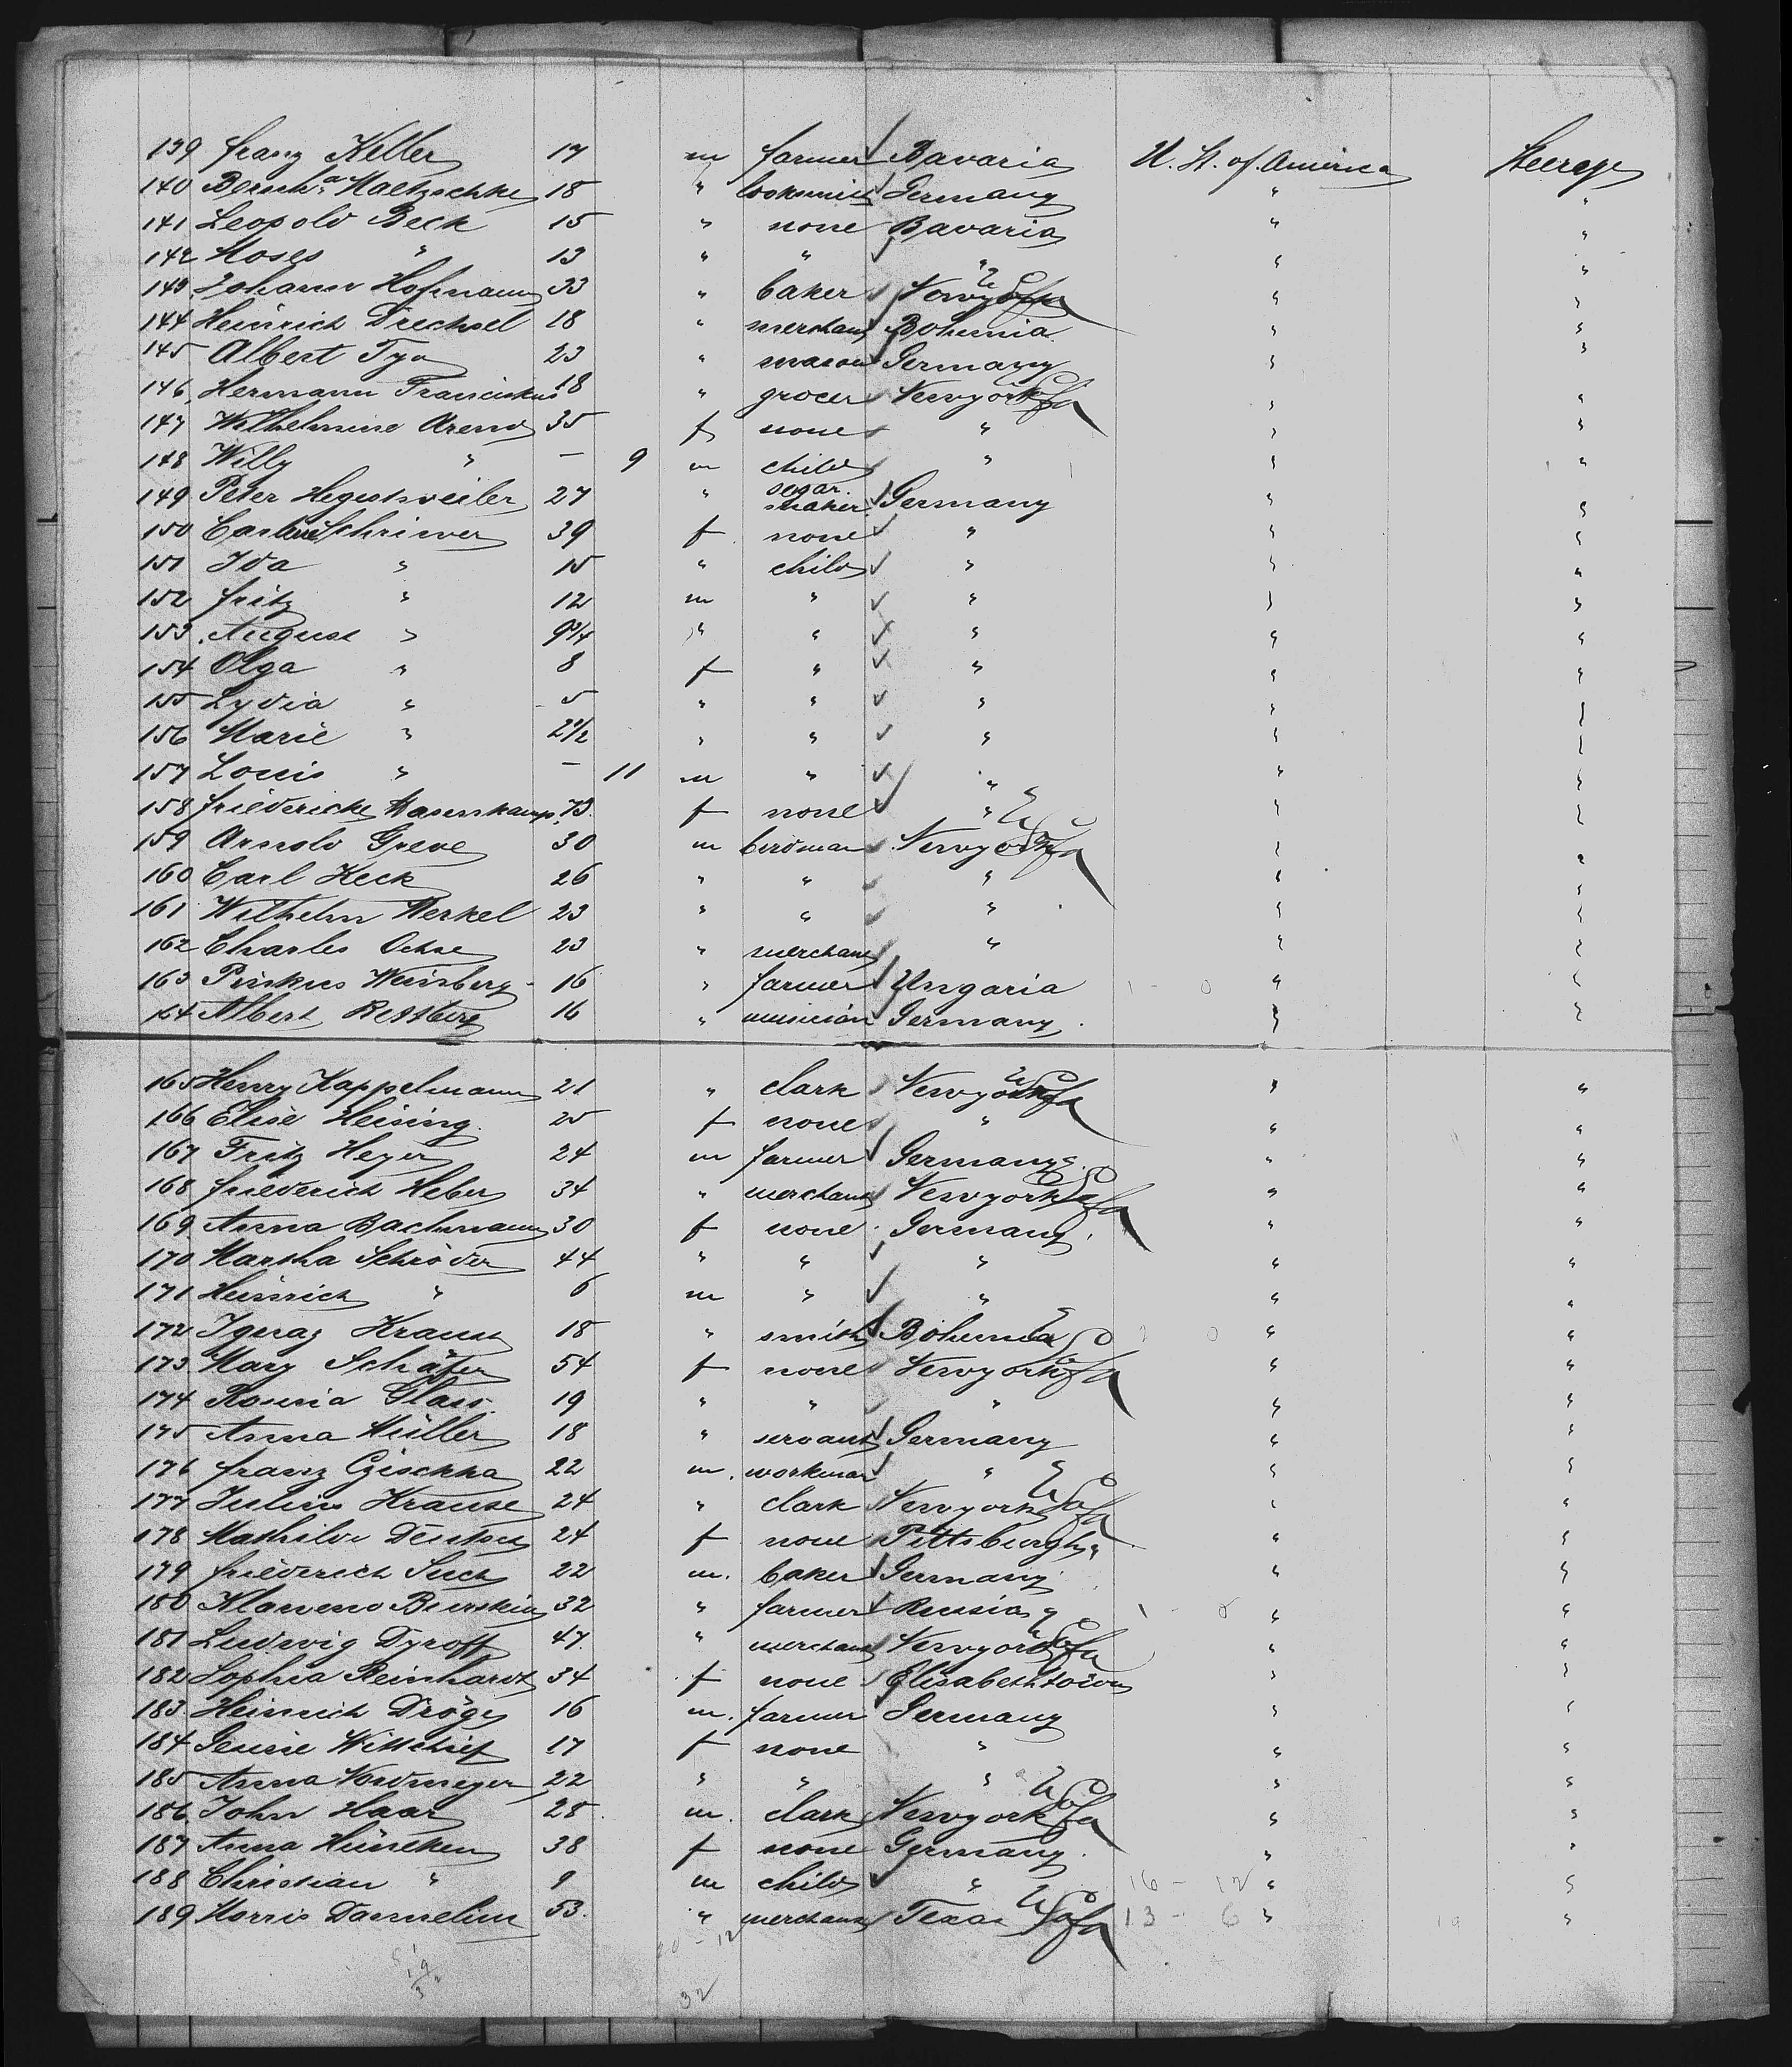 139 Franz Keller 17 m farmer Bavaria U. St. of America Steerage
140 18 " locksmith Germany " "
141 Leopold Beck 15 " none Bavaria " "
142 Moses " 13 " " " " "
143 Johann Hofmann 33 " baker Newyork " "
144 Heinrich Drechsel 18 " merchant Bohemia " "
145 Albert 23 " mason Germany " "
146 Hermann Franciskus 18 " grocer Newyork " "
147 Wilhelmine Arend 35 f none " " "
148 Willy " — 9 m child " " "
149 Peter Hegetsweiler 27 " segar maker Germany " "
150 Schriwer 39 f none " " "
151 Ida " 15 " child " " "
152 Fritz " 12 m " " " "
153 August " 9 3/4 " " " " "
154 Olga " 8 f " " " "
155 Lydia " 5 " " " " "
156 Marie " 2 1/2 " " " " "
157 Louis " — 11 m " " " "
158 Friedericke 73 f none " " "
159 Arnold Greve 30 m birdman Newyork " "
160 Carl Keck 26 " " " " "
161 Wilhelm Merkel 23 " " " " "
162 Charles Ochse 23 " merchant " " "
163 Pinkus Weinberg 16 " farmer Ungaria " "
164 Albert 16 " musician Germany " "
165 Henry Kappelmann 21 " clark Newyork " "
166 Elise Heising 25 f none " " "
167 Fritz Heyer 24 m farmer Germany " "
168 Friederich Heber 34 " merchant Newyork " "
169 Anna Bachmann 30 f none Germany " "
170 Martha Schröder 44 " " " " "
171 Heinrich " 6 m " " " "
172 18 " smith Bohemia " "
173 Mary Schäfer 54 f none Newyork " "
174 Glass 19 " " " " "
175 Anna Müller 18 " servant Germany " "
176 Franz Czischka 22 m workman " " "
177 Julius Krause 24 " clark Newyork " "
178 Mathilde 24 f none Pittsburgh " "
179 Friederich 22 m baker Germany " "
180 32 " farmer Russia " "
181 Ludwig Dyroff 47 " merchant Newyork " "
182 Sophia Reinhardt 34 f none Elisabethtown " "
183 Heinrich Dröge 16 m farmer Germany " "
184 17 f none " " "
185 Anna Nordmeyer 22 " " " " "
186 John Haar 28 m clark Newyork " "
187 Anna Hüneken 38 f none Germany " "
188 Christian " 9 m child " 16 - 12 " "
189 Morris 53 " merchant Texas 13 - 6 " "
32